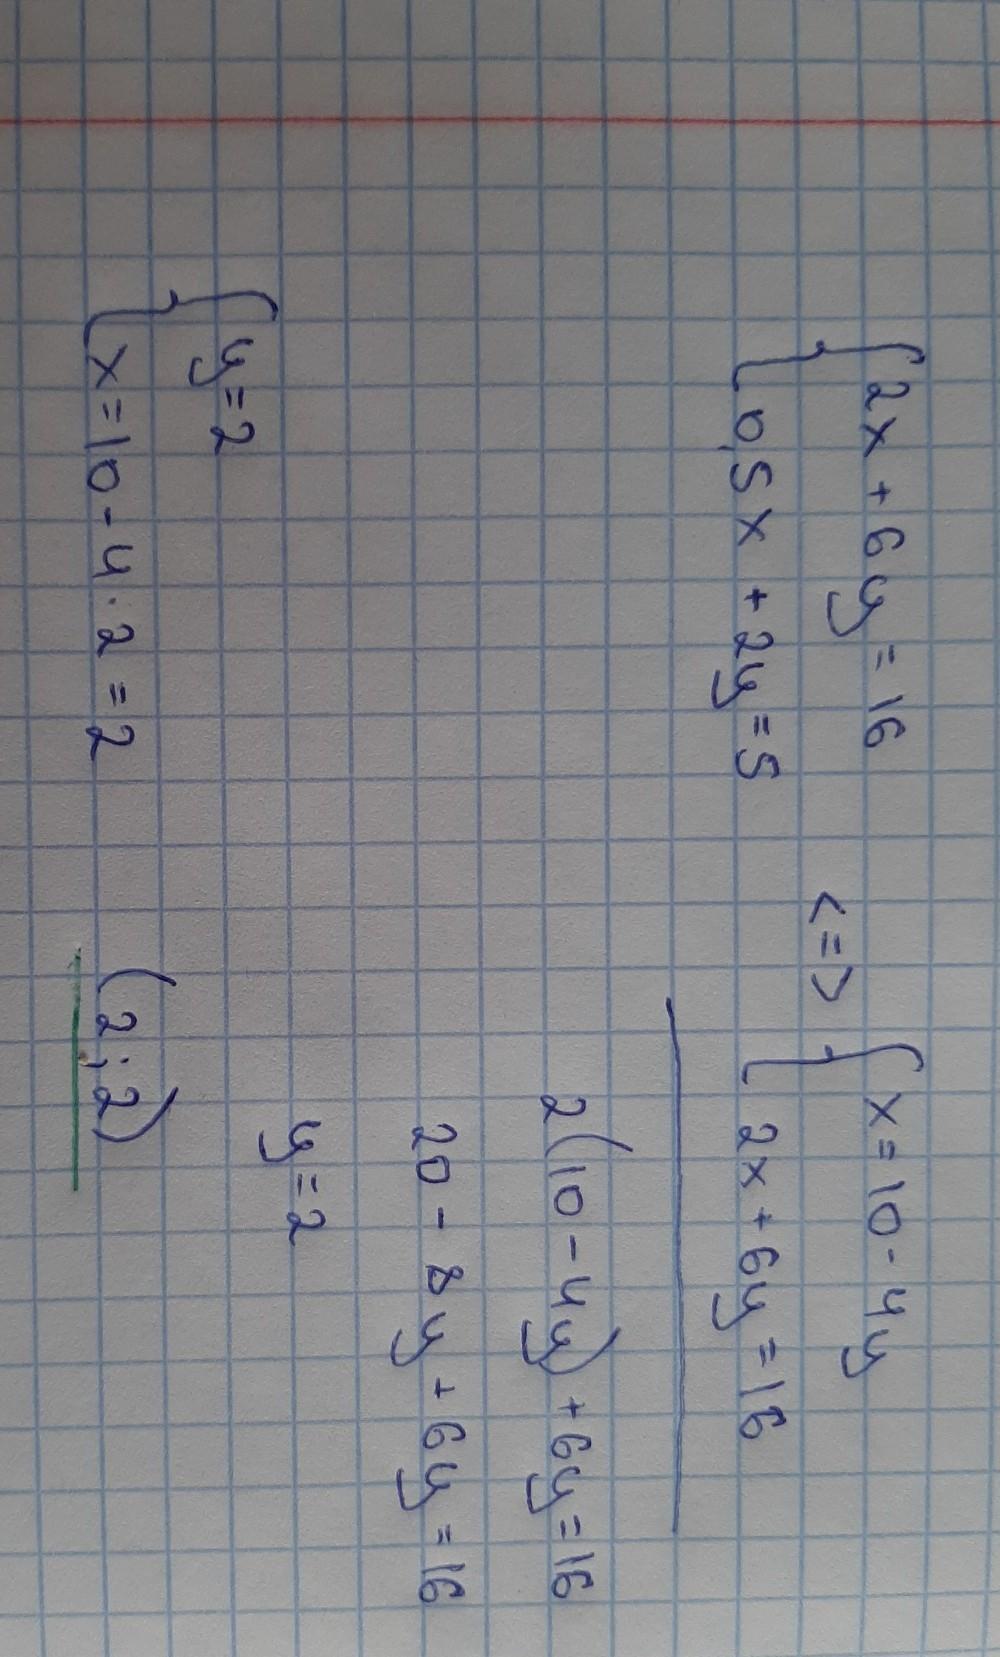 {2x + 6y = 16
{0,5x + 2y = 5
<=>
{x = 10 - 4y
{2x + 6y = 16
2(10 - 4y) + 6y = 16
20 - 8y + 6y = 16
y = 2
{y = 2
{x = 10 - 4 · 2 = 2
(2; 2)